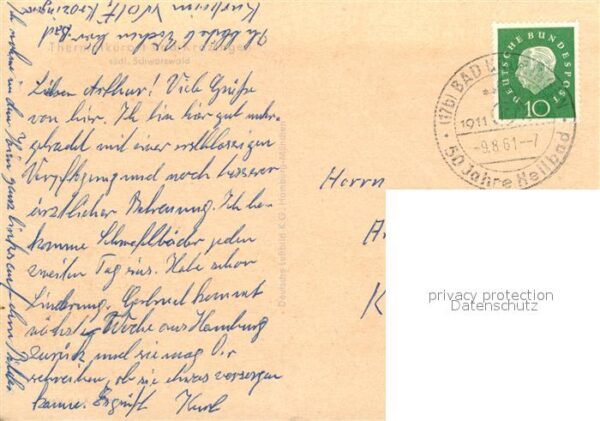 Thermalkurort Bad Krozingen
südl. Schwarzwald
Lieber Arthur! Viele Grüße
von hier. Ich bin hier gut unter-
gebracht mit einer erstklassigen
Verpflegung und noch besserer
ärztlicher Betreuung. Ich be-
komme Schwefelbäder jeden
zweiten Tag eins. Habe schon
Linderung. kommt
nächste Woche aus Hamburg
zurück und sie mag Dir
schreiben, ob sie etwas versorgen
kann. Es grüßt Kurt
Ich wohne in dem ganz links auf dem Bilde
Deutsches Luftbild K.G. Hamburg-München
DEUTSCHE BUNDESPOST
10
(17b) BAD KROZINGEN
1911
-9.8.61--7
50 Jahre Heilbad
Herrn
A
K
privacy protection
Datenschutz